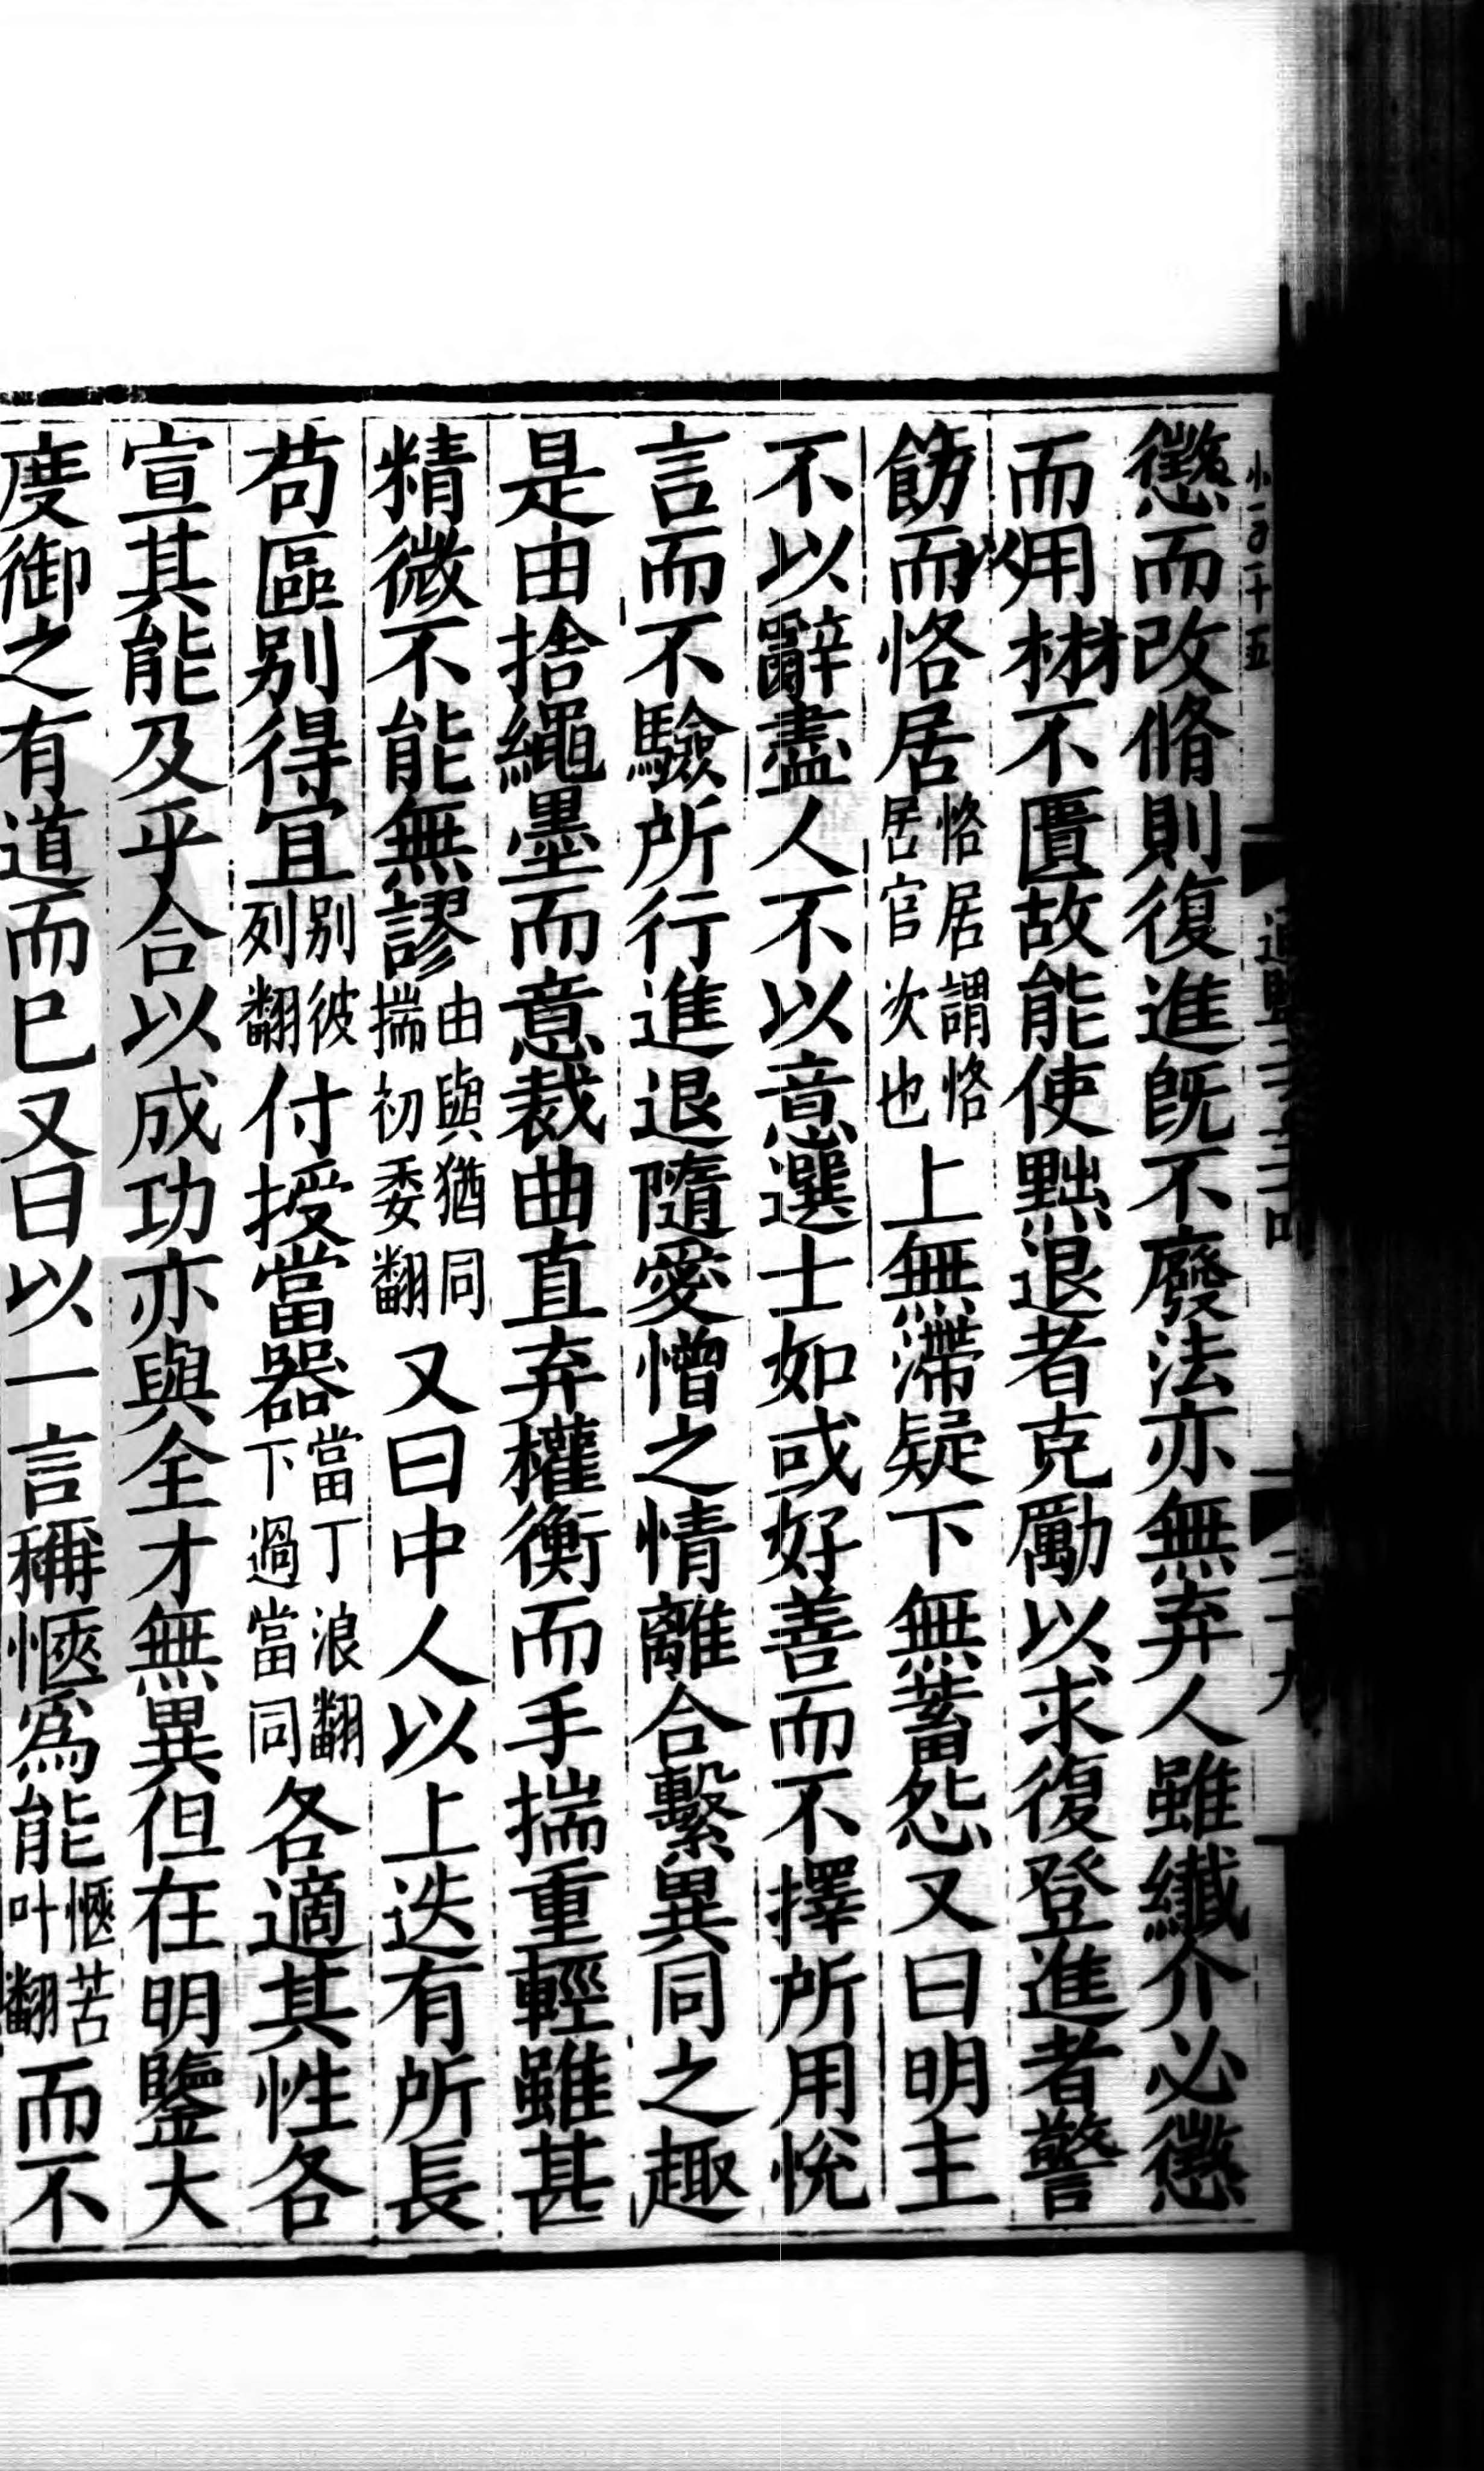 懲而改脩則復進旣不廢法亦無弃人雖纖介必懲
而用材不匱故能使黜退者克勵以求復登進者警
飭而恪居恪居謂恪居官次也上無滯疑下無蓄怨又曰明主
不以辭盡人不以意選士如或好善而不擇所用悅
言而不驗所行進退隨愛憎之情離合繫異同之趣
是由捨繩墨而意裁曲直弃權衡而手揣重輕雖甚
精微不能無謬由與猶同揣初委翻又曰中人以上迭有所長
苟區别得宜别彼列翻付授當器當丁浪翻下過當同各適其性各
宣其能及乎合以成功亦與全才無異但在明鑒大
度御之有道而巳又曰以一言稱愜爲能愜苦叶翻而不